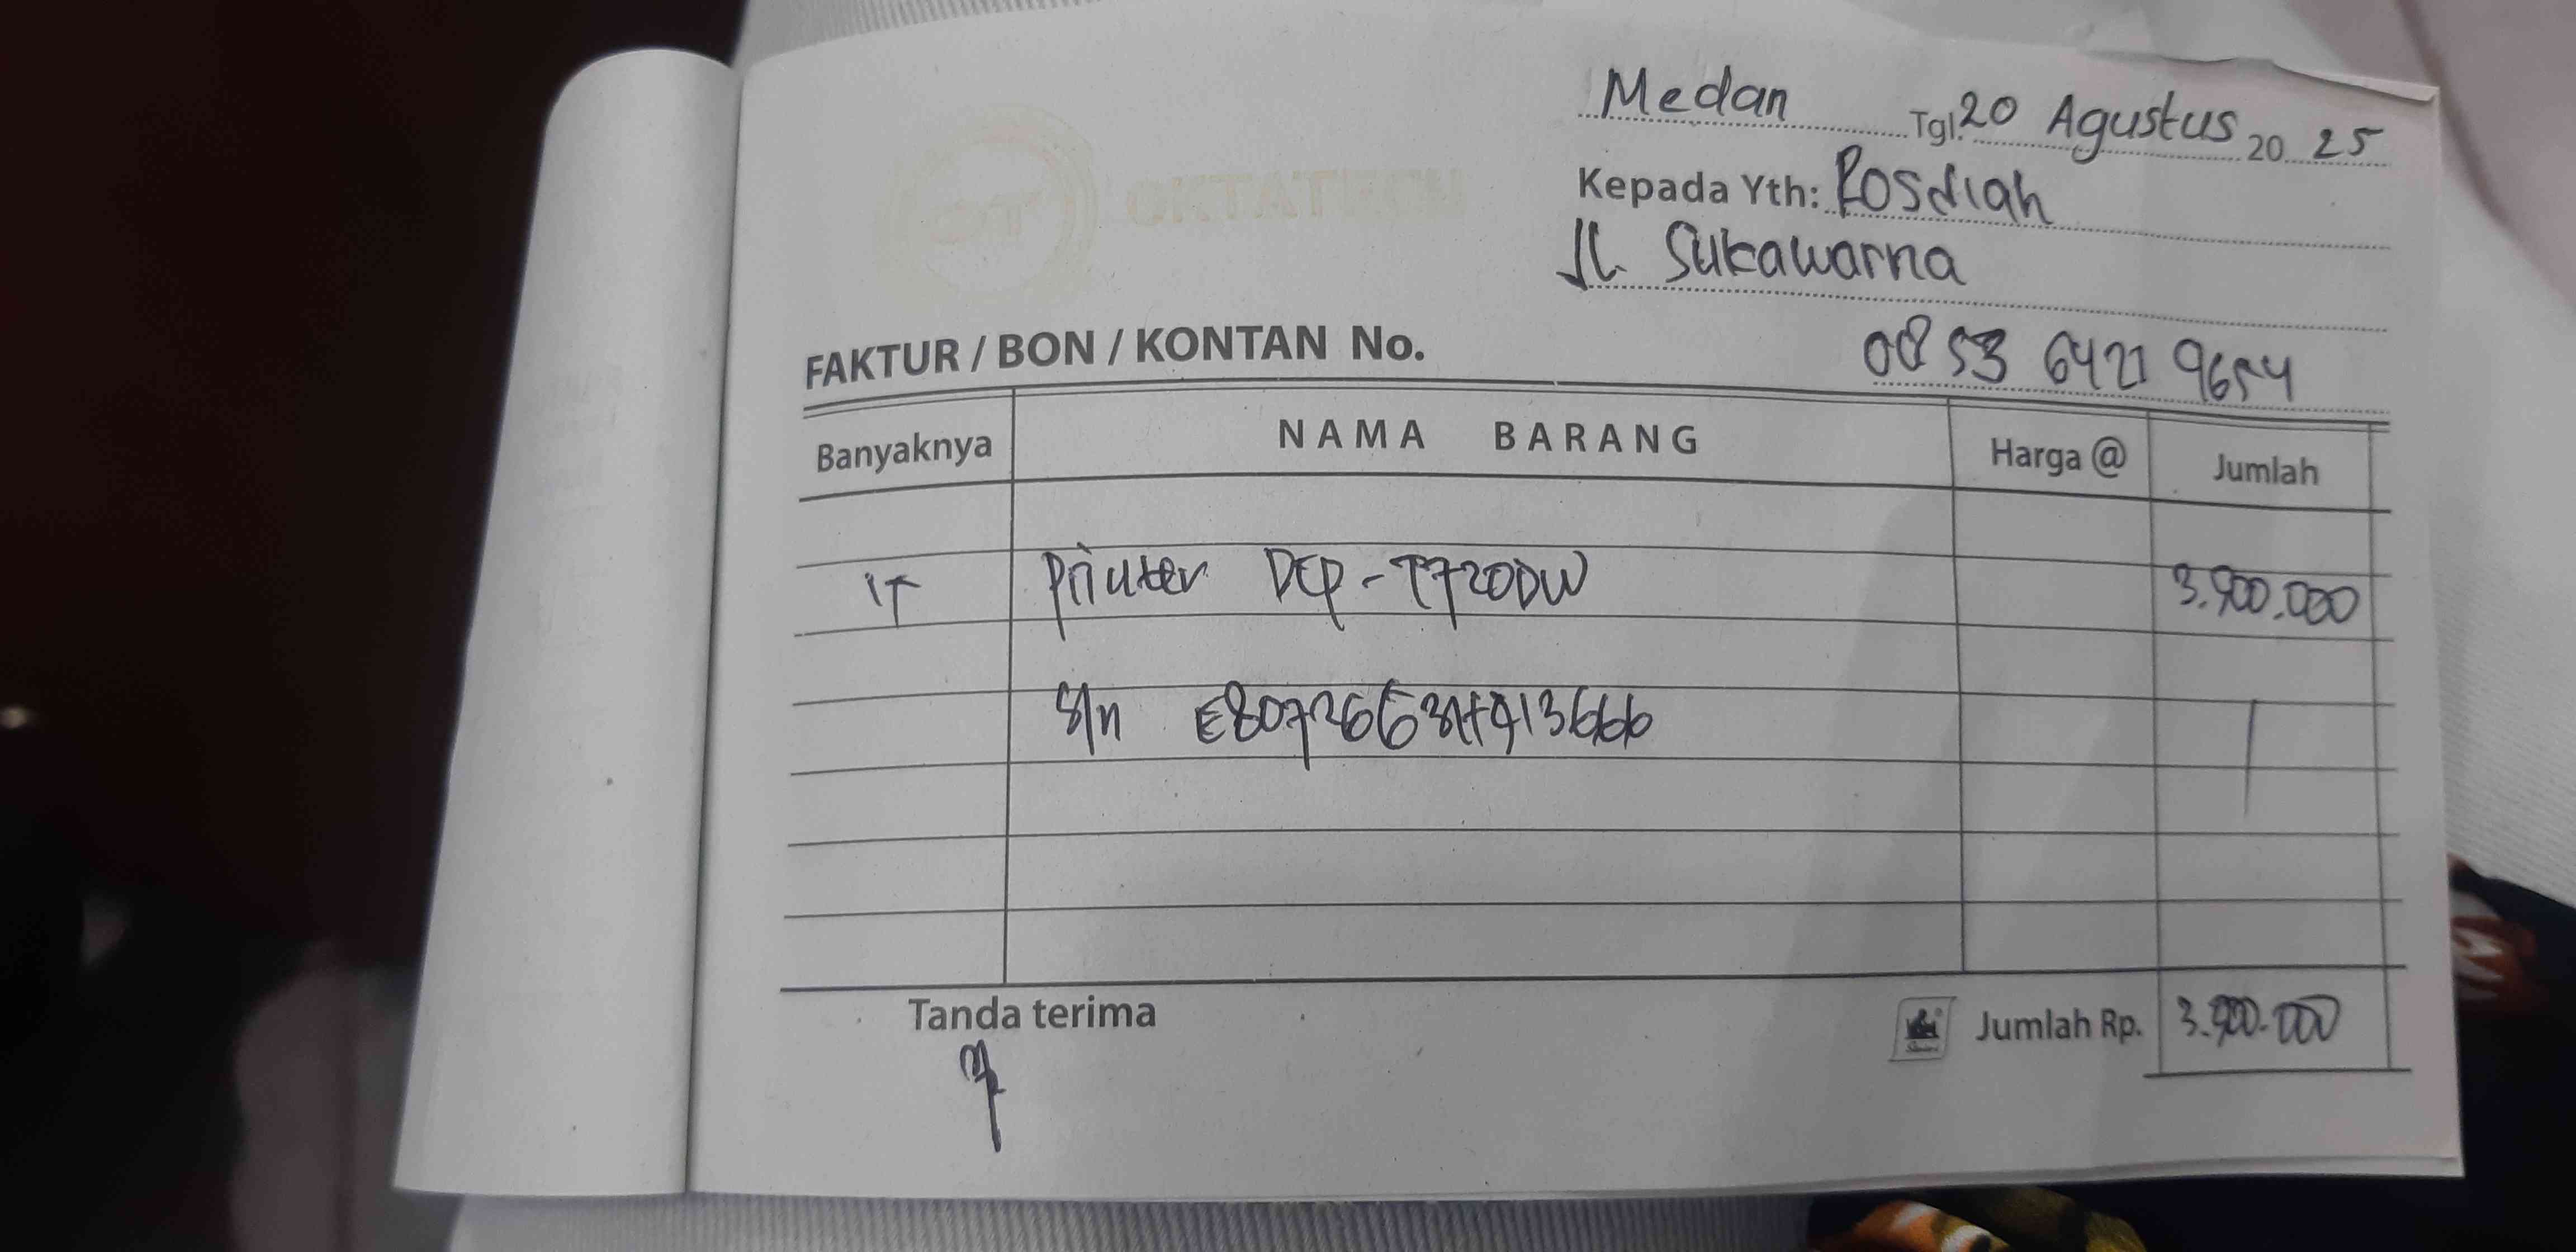 Medan Tgl. 20 Agustus 20 25
Kepada Yth: Rosdiah
Jl. Sukawarna
FAKTUR / BON / KONTAN No.
0853 6421 9654
Banyaknya NAMA BARANG Harga @ Jumlah
Printer DCP-T720DW 3.900.000
S/n
Tanda terima Jumlah Rp. 3.900.000